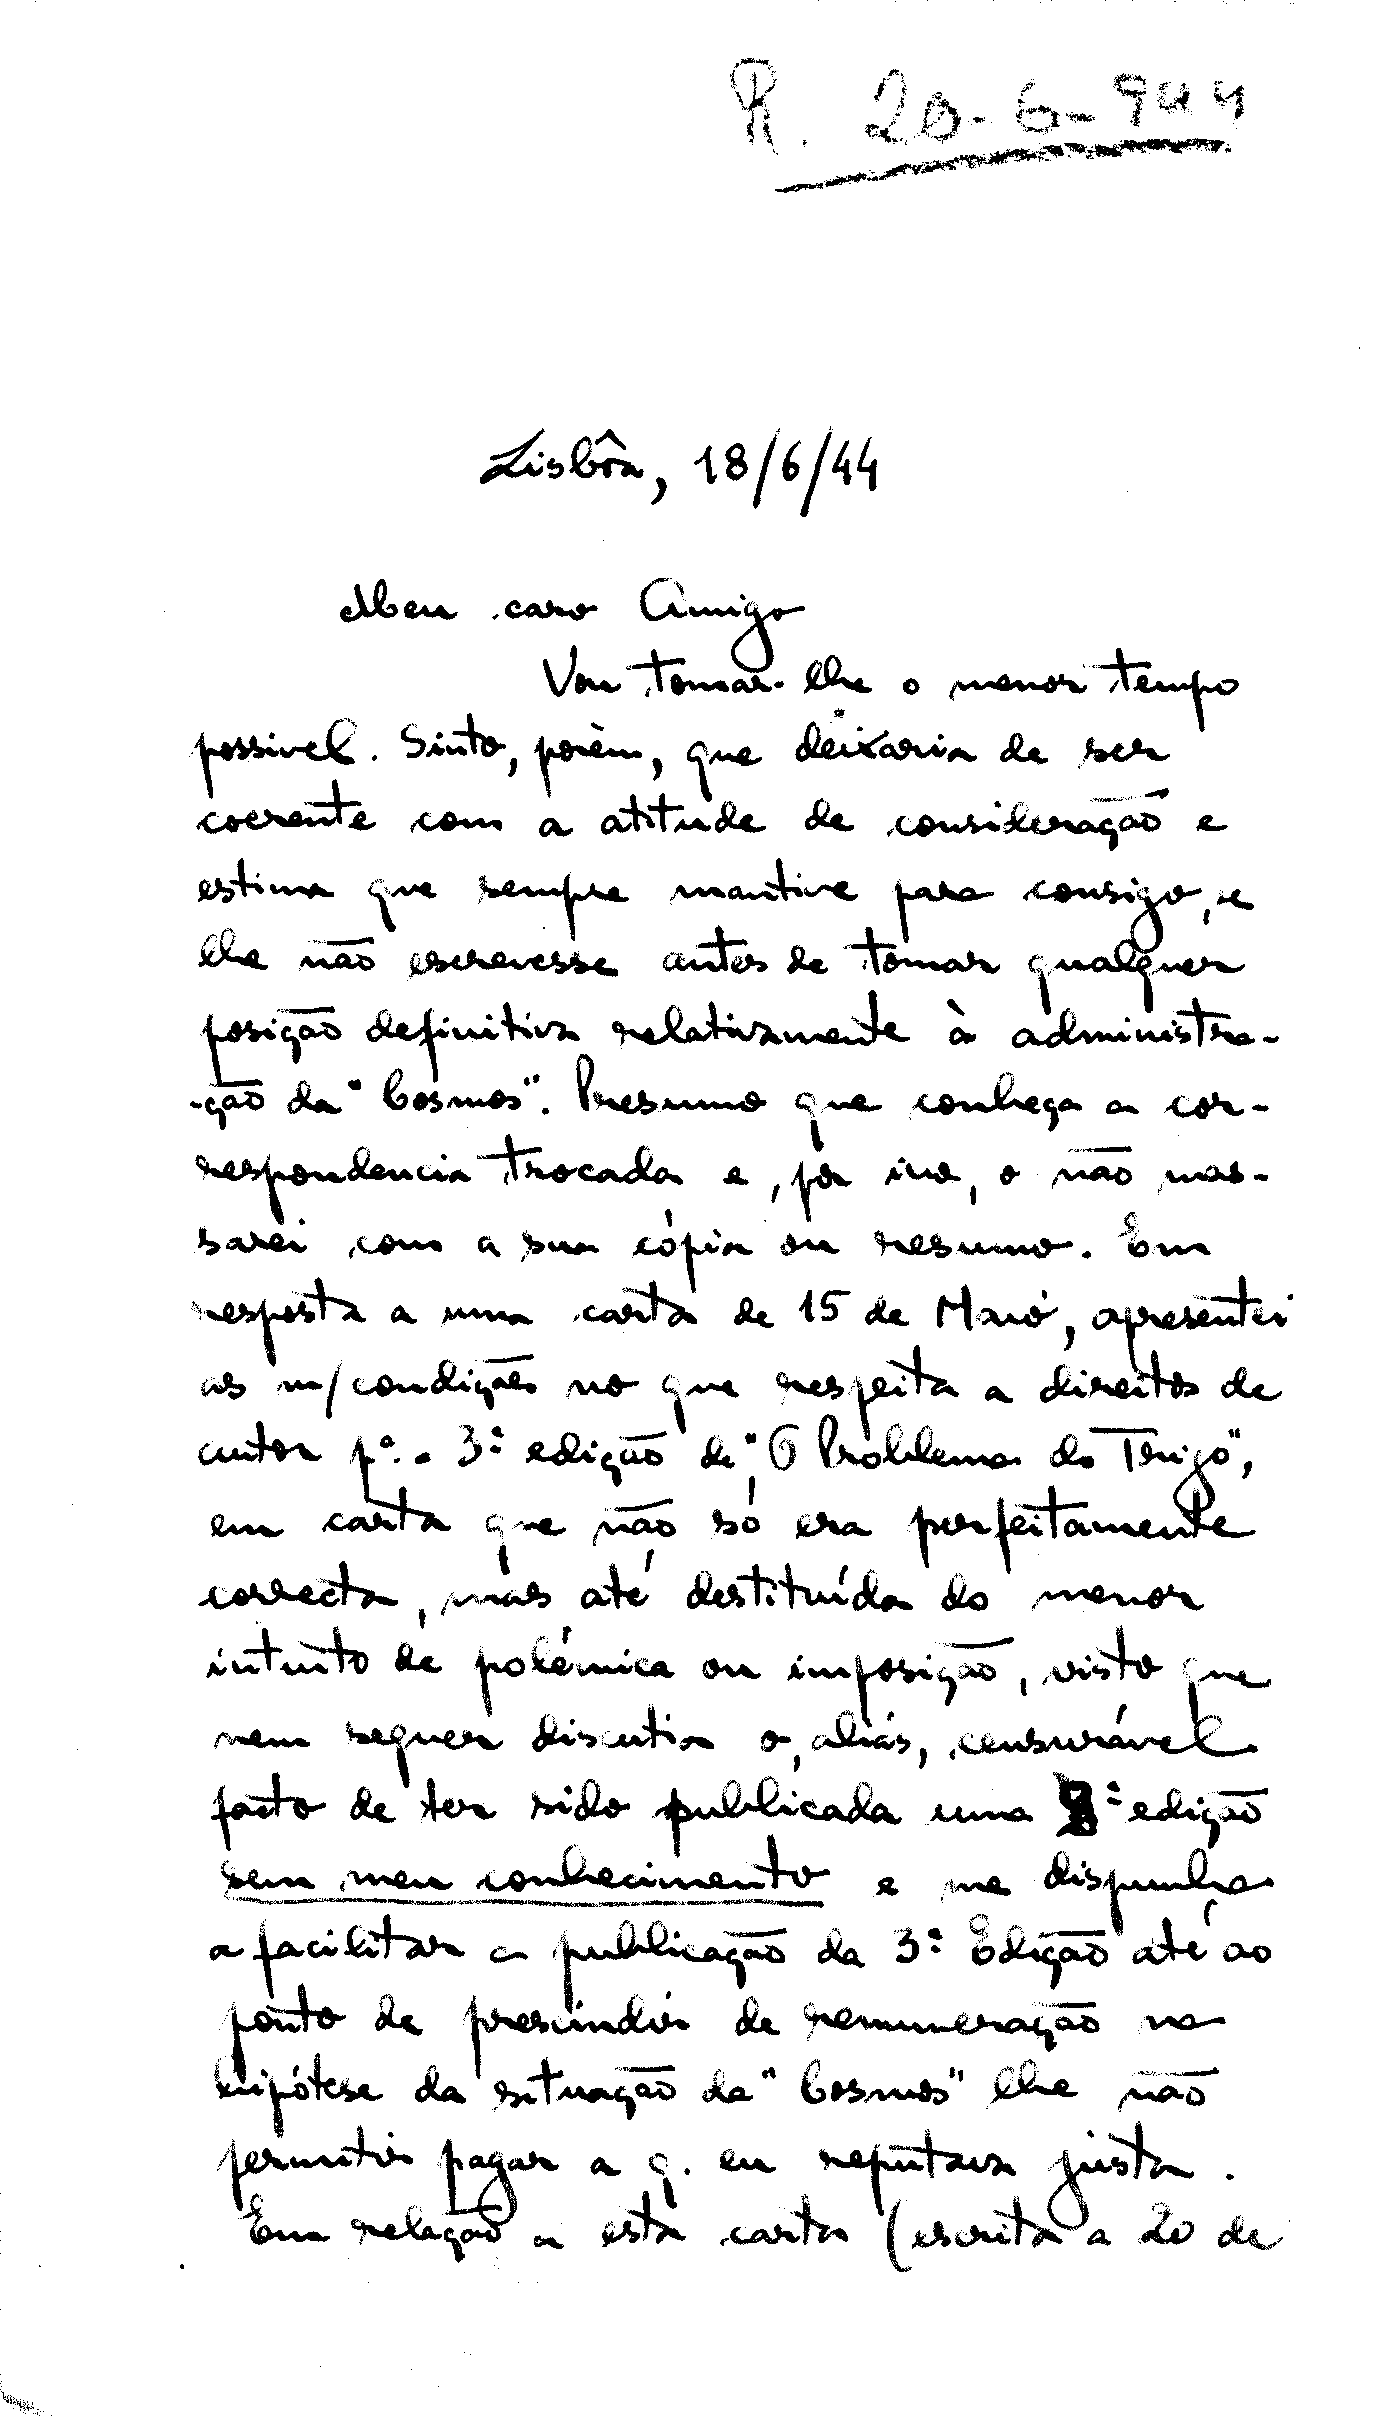 R. 20-6-944
Lisbôa, 18/6/44
Meu caro Amigo
Vou tomar-lhe o menor tempo
possivel. Sinto, porèm, que deixaria de ser
coerente com a atitude de consideração e
estima que sempre mantive para consigo, se
lhe não escrevesse antes de tomar qualquer
posição definitiva relativamente à administra-
-ção da "Cosmos". Presumo que conheça a cor-
respondencia trocada e, por isso, o não mas-
sarei com a sua cópia ou resumo. Em
resposta a uma carta de 15 de Maio, apresentei
as m/condições no que respeita a direitos de
autor pª. a 3ª edição de "O Problema do Trigo",
em carta que não só era perfeitamente
correcta, mas até destituída do menor
intuito de polémica ou imposição, visto que
nem sequer discutia o, aliás, censurável
facto de ter sido publicada uma 2ª edição
sem meu conhecimento e me dispunha
a facilitar a publicação da 3ª Edição até ao
ponto de prescindir de remuneração na
hipótese da situação da "Cosmos" lhe não
permitir pagar a q. eu reputava justa.
Em relação a esta carta (escrita a 20 de